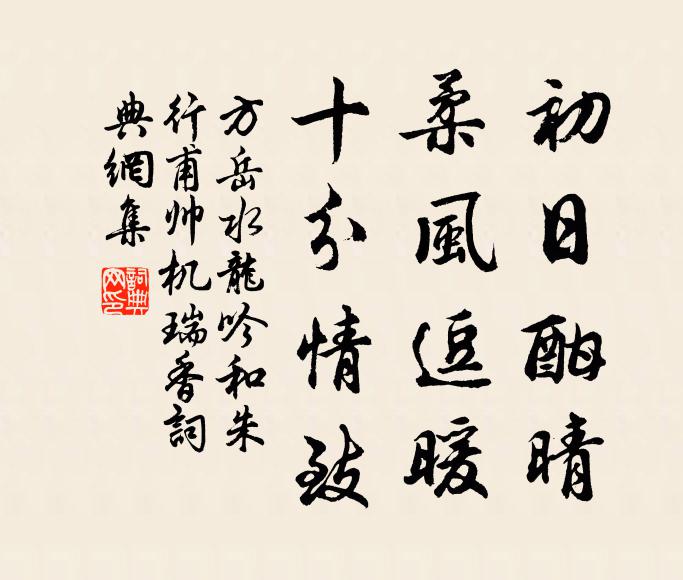 初日酣晴
柔風逗暖
十分情致
方岳水龍吟和朱
行甫帅机瑞香詞
典網集
詞典網印